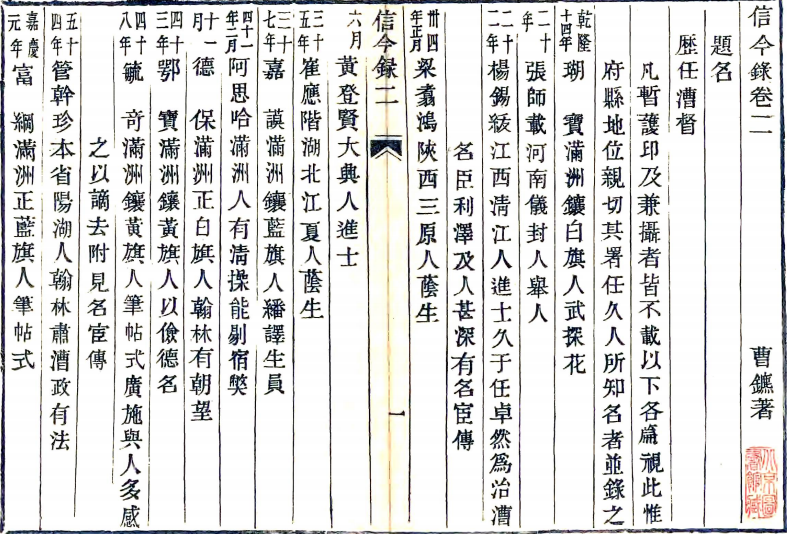 信今錄卷二 曹鑣著
題名
歷任漕督
凡暫護印及兼攝者皆不載以下各篇視此惟
府縣地位親切其署任久人所知名者並錄之
乾隆十四年 瑚 寶滿洲鑲白旗人武探花
二十年 張師載河南儀封人舉人
二十二年 楊錫紱江西清江人進士久于任卓然爲治漕
名臣利澤及人甚深有名宦傳
卅四年正月 梁翥鴻陝西三原人蔭生
信今録二 一
六月 黃登賢大興人進士
三十三年 崔應階湖北江夏人蔭生
三十七年 嘉 謨滿洲鑲藍旗人繙譯生員
四十一年二月 阿思哈滿洲人有清操能剔宿獘
十一月 德 保滿洲正白旗人翰林有朝望
四十三年 鄂 寶滿洲鑲黃旗人以儉德名
四十八年 毓 竒滿洲鑲黃旗人筆帖式廣施與人多感
之以謫去附見名宦傳
五十四年 管幹珍本省陽湖人翰林肅漕政有法
嘉慶元年 富 綱滿洲正藍旗人筆帖式